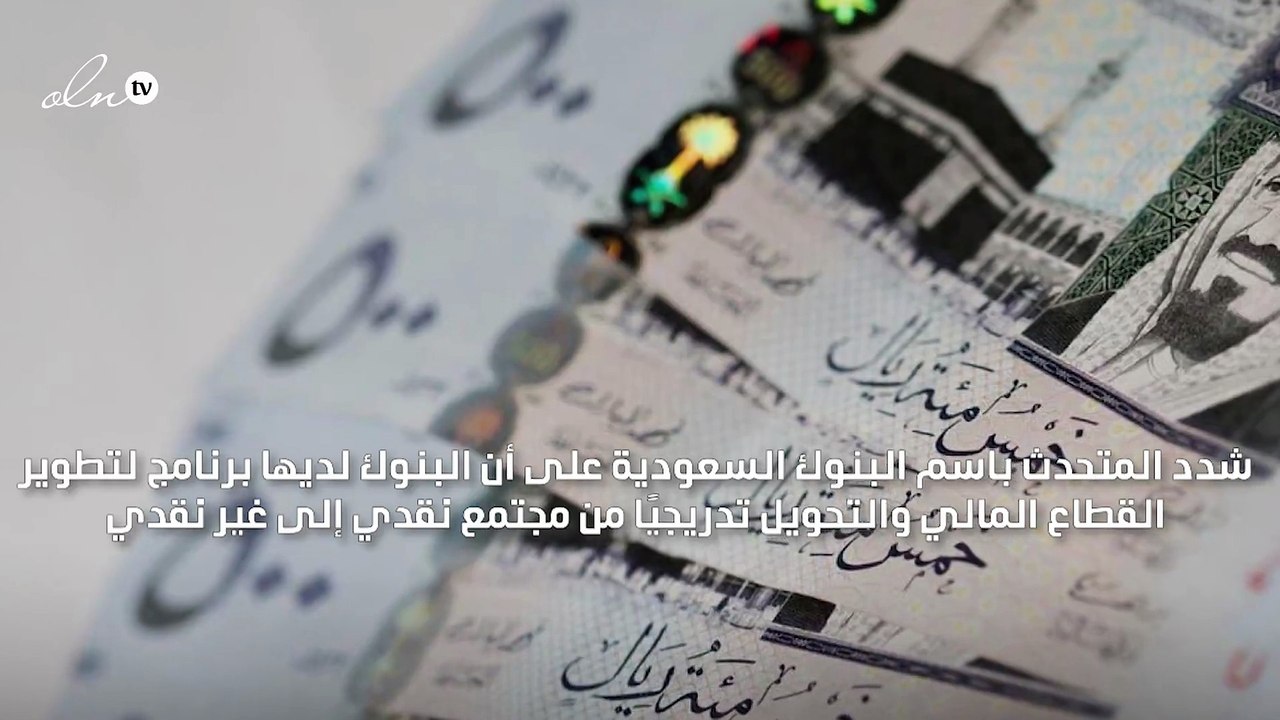 oln tv
٥٠٠
٥٠٠
٥٠٠
خمس مئة ريال
خمس مئة ريال
خمس مئة ريال
شدد المتحدث باسم البنوك السعودية على أن البنوك لديها برنامج لتطوير
القطاع المالي والتحويل تدريجيًا من مجتمع نقدي إلى غير نقدي